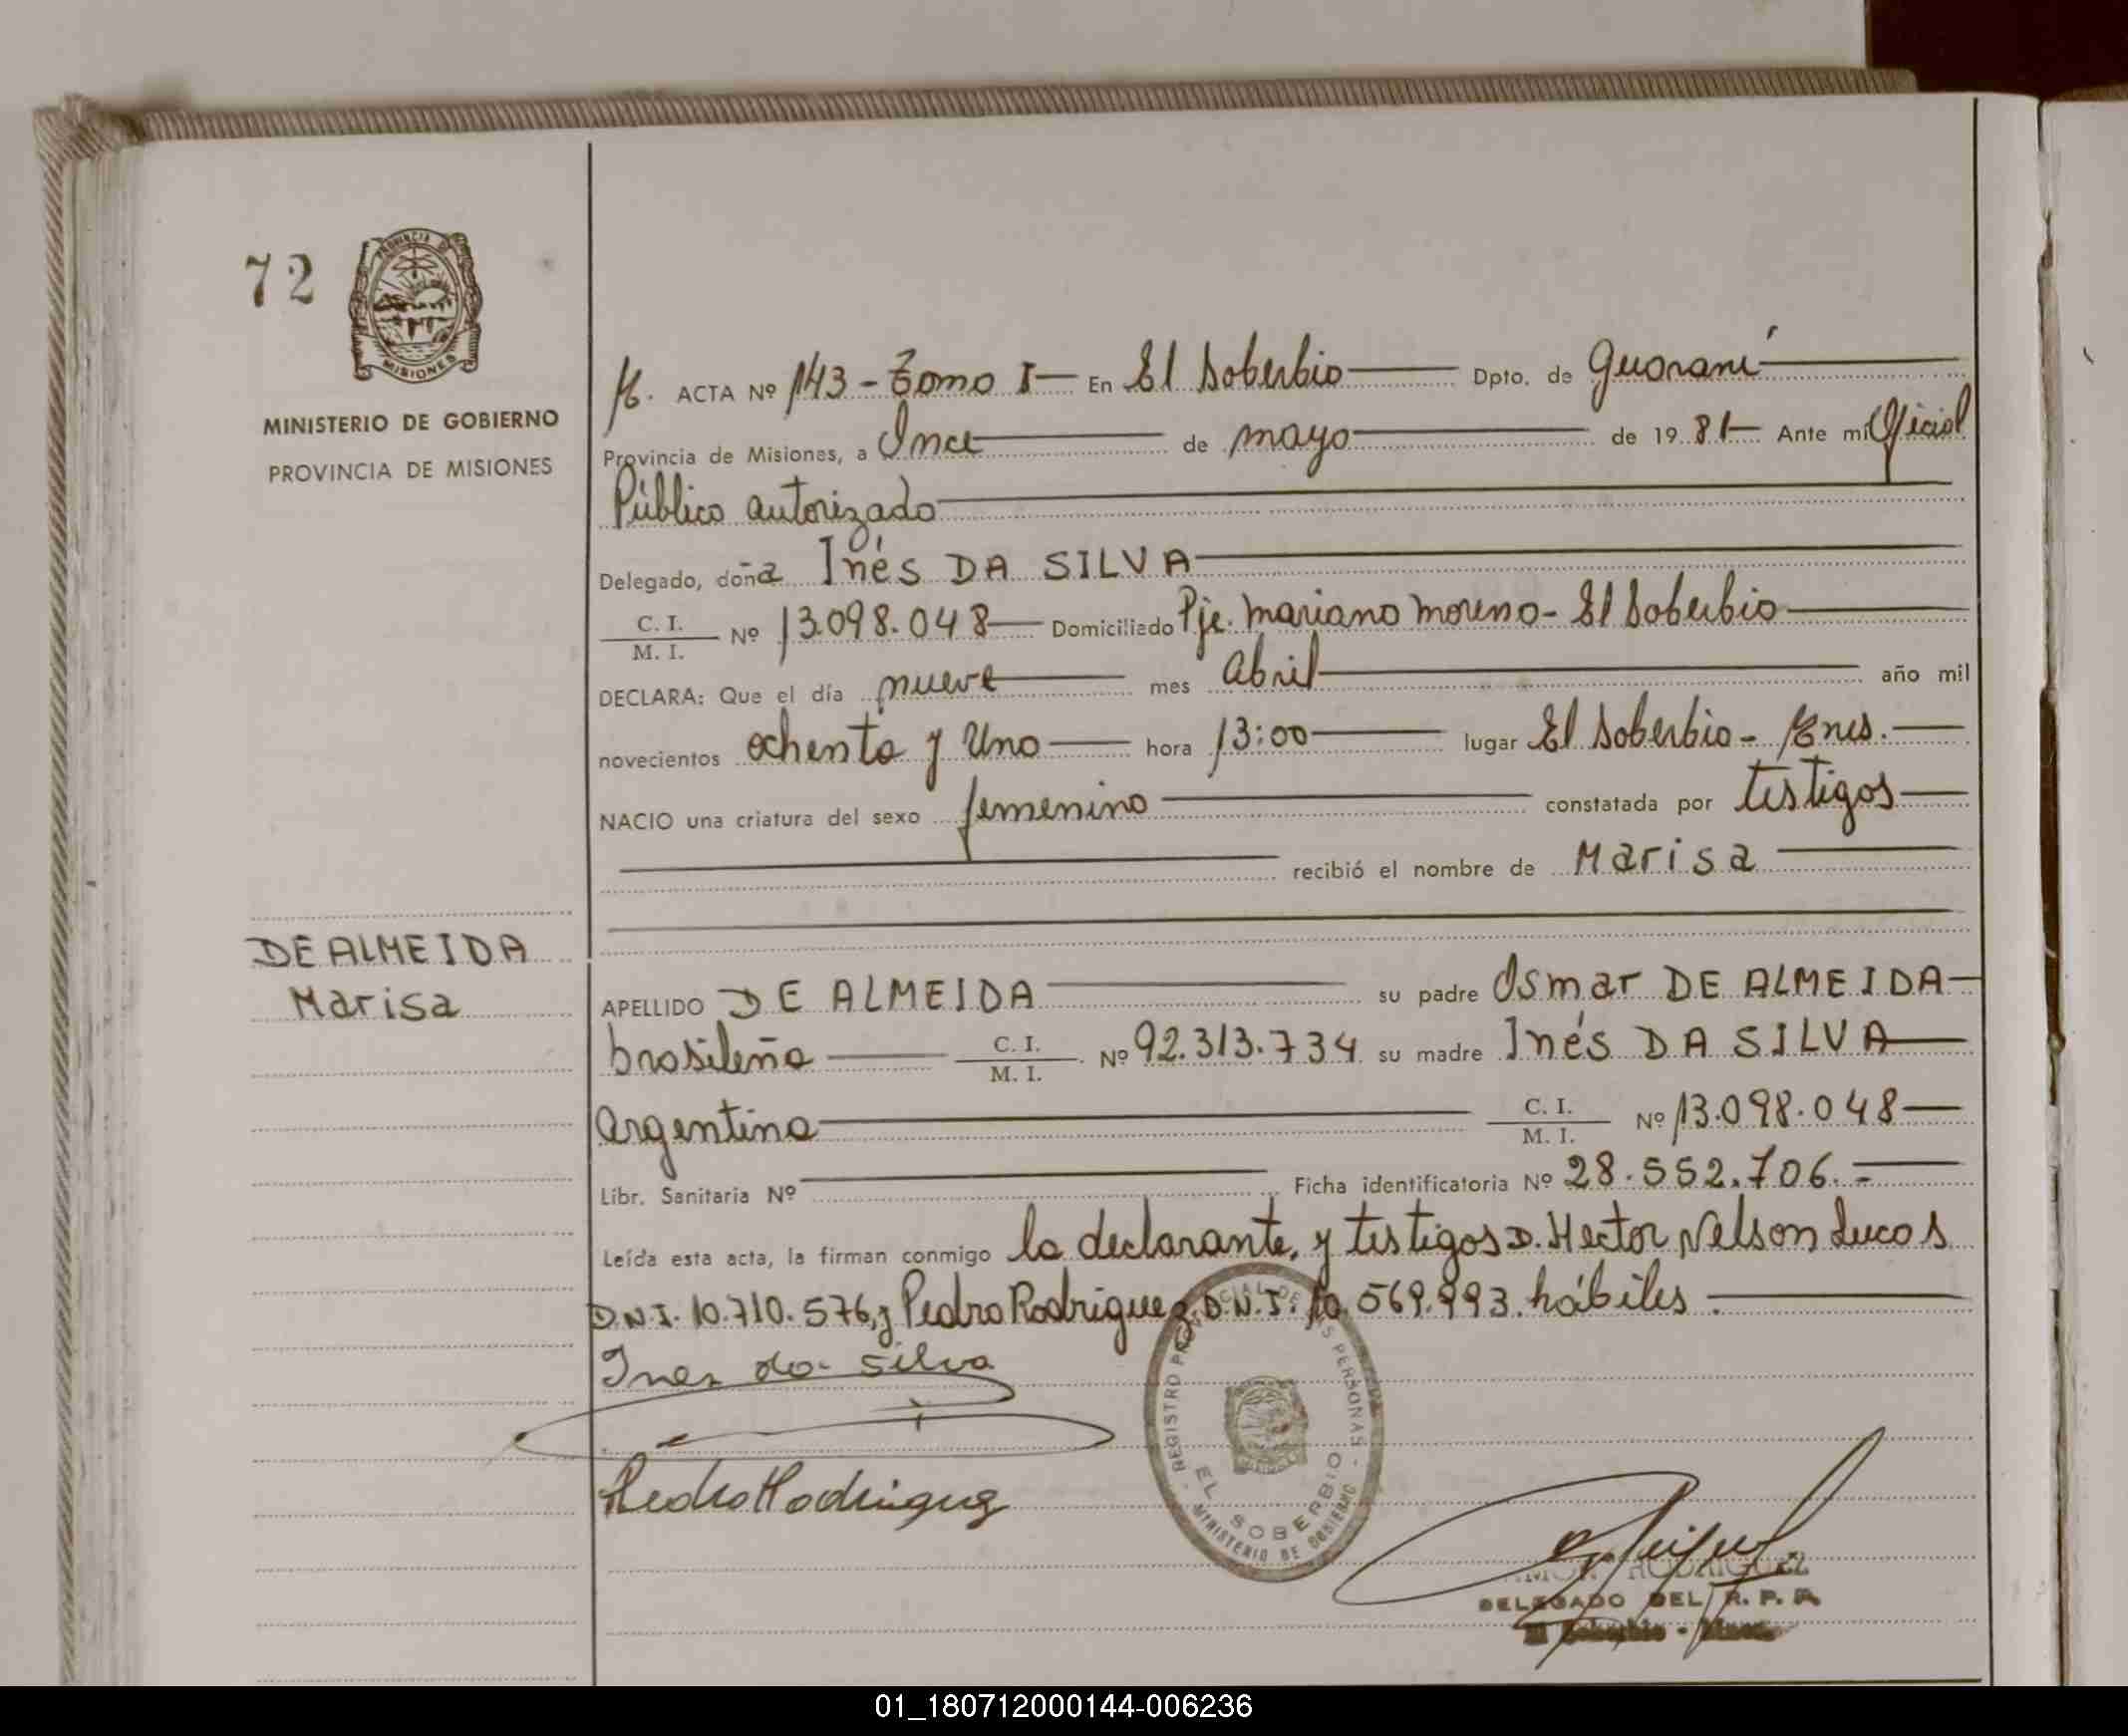 72
PROVINCIA DE
MISIONES
MINISTERIO DE GOBIERNO
PROVINCIA DE MISIONES
DE ALMEIDA
Marisa
ACTA Nº 143 - Tomo I - En El Soberbio Dpto. de Guaraní
Provincia de Misiones, a Once de mayo de 1981 Ante mi Oficial
Público autorizado
Delegado, doña Inés DA SILVA
C. I. / M. I. Nº 13.098.048 Domiciliado Pje. Mariano Moreno - El Soberbio
DECLARA: Que el día nueve mes abril año mil
novecientos ochenta y Uno hora 13:00 lugar El Soberbio -
NACIO una criatura del sexo femenino constatada por testigos
recibió el nombre de Marisa
APELLIDO DE ALMEIDA su padre Osmar DE ALMEIDA
brasileña C. I. / M. I. Nº 92.313.734 su madre Inés DA SILVA
argentina C. I. / M. I. Nº 13.098.048
Libr. Sanitaria Nº Ficha identificatoria Nº 28.552.706.-
Leída esta acta, la firman conmigo la declarante, y testigos D. Hector Nelson Lucas
D.N.I. 10.710.576, y Pedro Rodriguez D.N.I. 10.569.993. hábiles.
Ines da silva
Pedro Rodriguez
REGISTRO PROVINCIAL DE LAS PERSONAS
EL SOBERBIO
MINISTERIO DE GOBIERNO
RODRIGUEZ
DELEGADO DEL R. P. P.
El Soberbio -
01_180712000144-006236